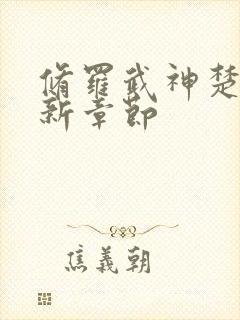 脩羅武神楚
新章節
焦義朝